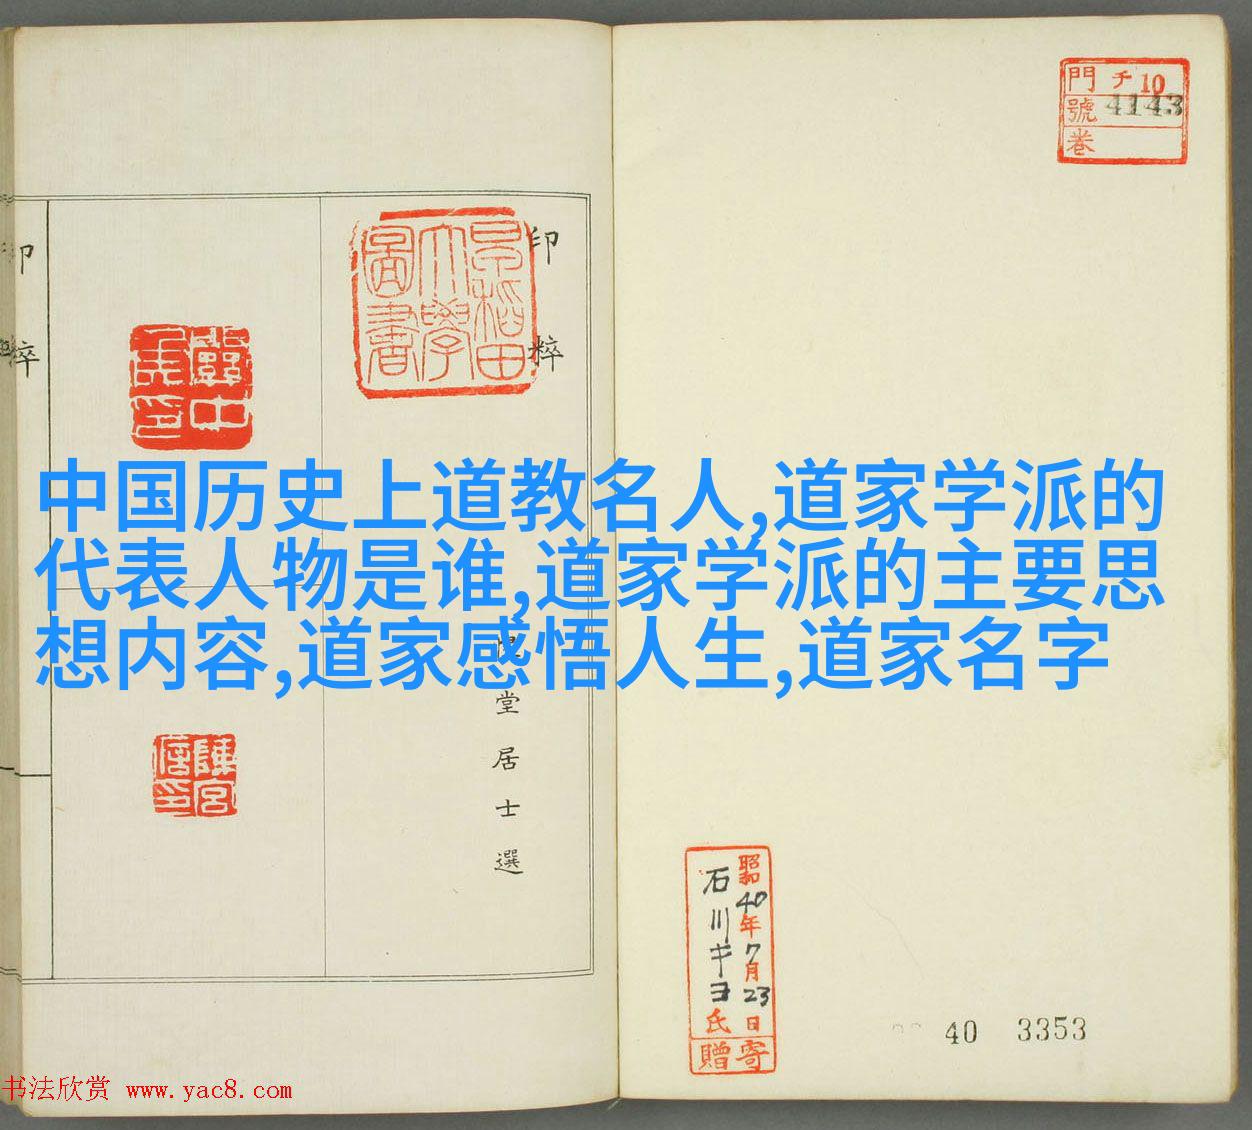 中国历史上道教名人,道家学派的
代表人物是谁,道家学派的主要思
想内容,道家感悟人生,道家名字
門 チ 10
號 4143
卷
印粹
早稻田
大學
圖書
印粹
堂居士選
昭和40年7月23日
石川キヨ氏
寄贈
40 3353
书法欣赏 www.yac8.com